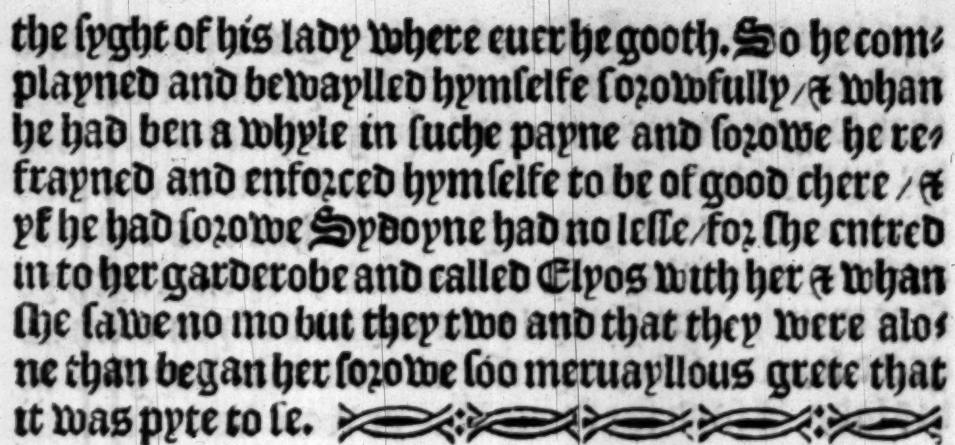 the ſyght of his lady where euer he gooth. So he com⸗
playned and bewaylled hymſelfe ſoꝛowfully / & whan
he had ben a whyle in ſuche payne and ſoꝛowe he re⸗
frayned and enfoꝛced hymſelfe to be of good chere / &
yf he had ſoꝛowe Sydoyne had no leſſe / foꝛ ſhe entred
in to her garderobe and called Elyos with her & whan
ſhe ſawe no mo but they two and that they were alo⸗
ne than began her ſoꝛowe ſoo meruayllous grete that
it was pyte to ſe.